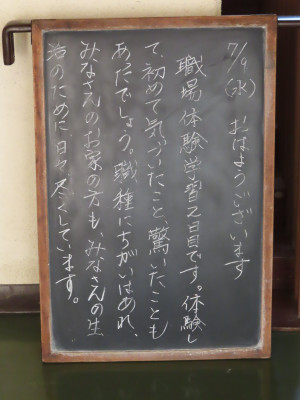 7/9(水) おはようございます
職場体験学習2日目です。体験し
て、初めて気づいたこと、驚いたことも
あったでしょう。職種にちがいはあれ、
みなさんのお家の方も、みなさんの生
活のために、日々尽くしています。